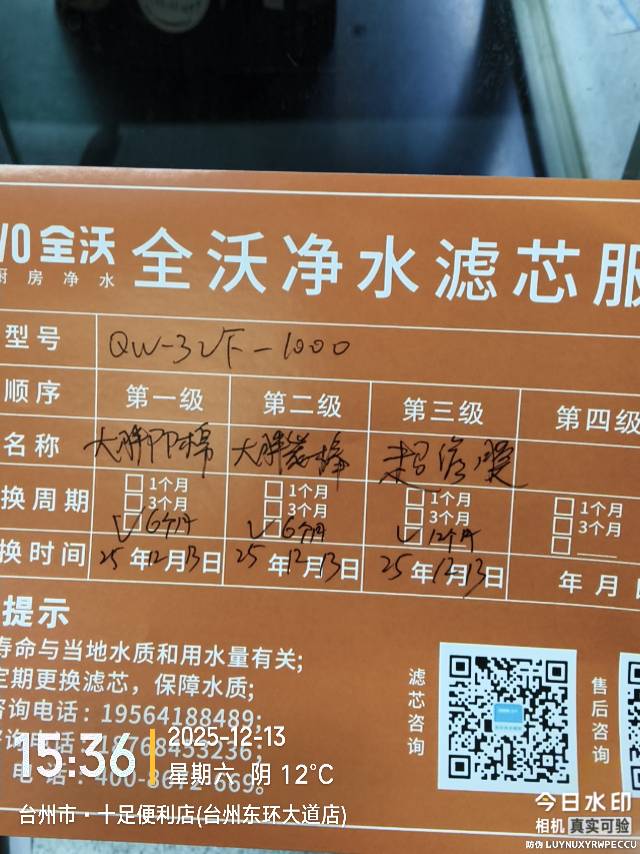 VO全沃 全沃净水滤芯服
厨房净水
型号 QW-3UF-1000
顺序 第一级 第二级 第三级 第四级
名称 大胖PP棉 大胖炭棒 超滤膜
换周期 1个月 1个月 1个月 1个月
3个月 3个月 3个月 3个月
6个月 6个月 12个月
换时间 25年12月13日 25年12月13日 25年12月13日 年 月
提示
寿命与当地水质和用水量有关;
定期更换滤芯，保障水质;
咨询电话：19564188489;
咨询电话：18768453236;
电话：400-8672-669。
滤芯咨询
售后咨询
15:36
2025-12-13
星期六 阴 12℃
台州市·十足便利店(台州东环大道店)
今日水印
相机 真实可验
防伪 LUYNUXYRWPECCU